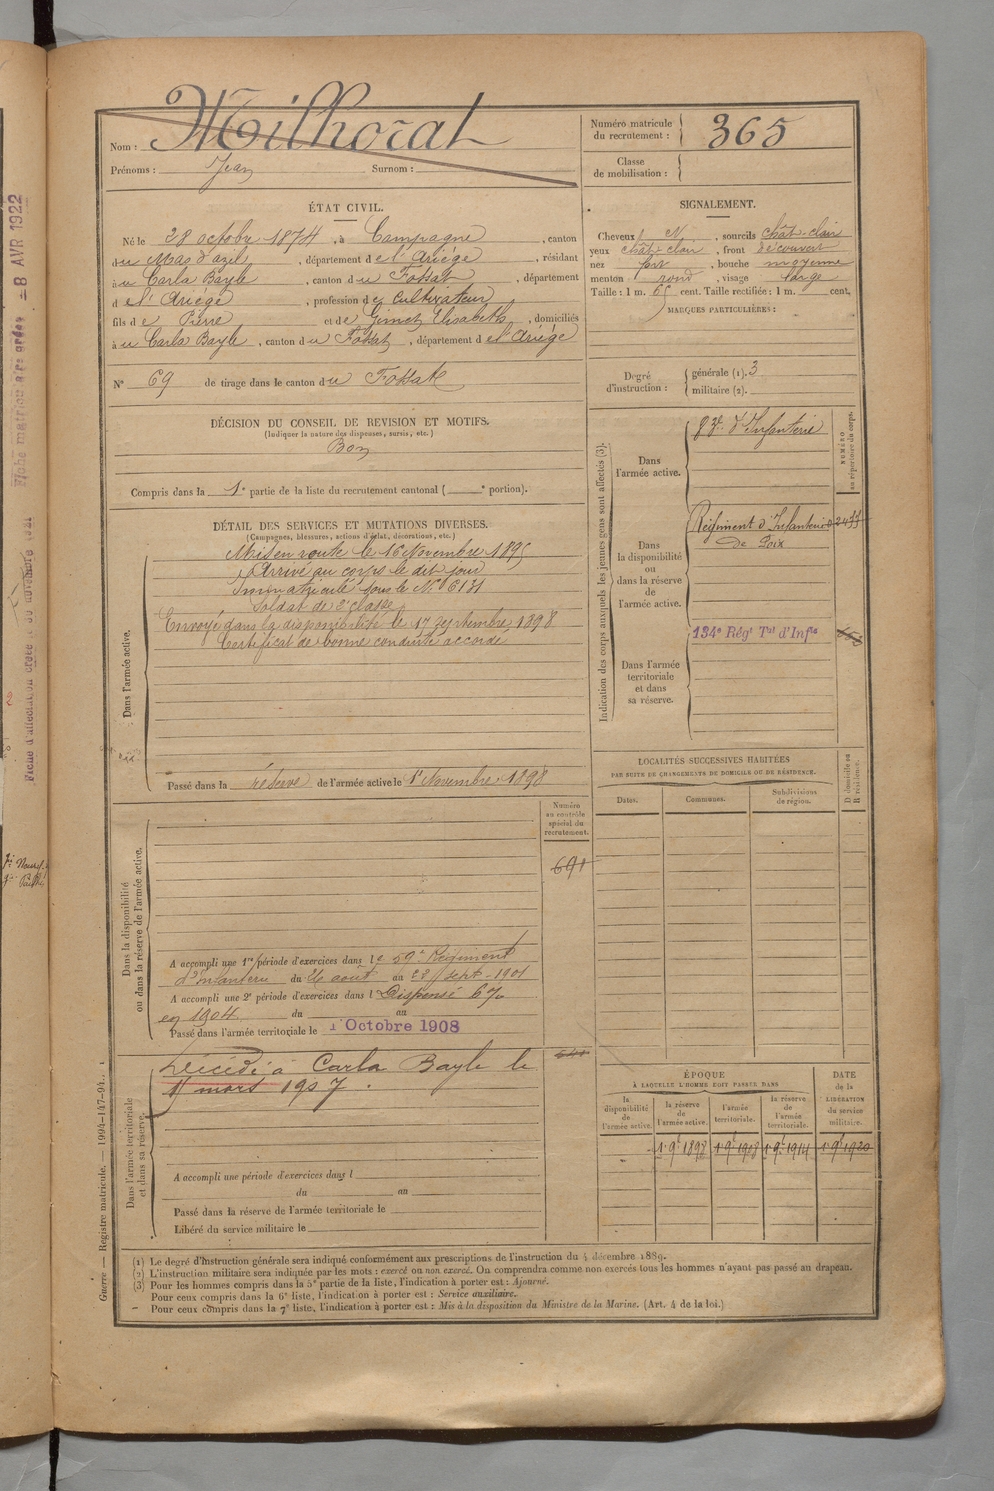 Nom : Milhorat
Prénoms : Jean Surnom :
Numéro matricule du recrutement : 365
Classe de mobilisation :
ÉTAT CIVIL.
Né le 28 octobre 1874, à Campagne, canton
du Mas d'azil, département de l'Ariége, résidant
à u Carla Bayle, canton du Fossat, département
d e l'Ariége, profession de Cultivateur
fils de Pierre et de Gimet Elisabeth, domiciliés
à u Carla Bayle, canton du Fossat, département de l'Ariége
N° 69 de tirage dans le canton du Fossat
SIGNALEMENT.
Cheveux N, sourcils chât-clair
yeux chât clair, front découvert
nez fort, bouche moyenne
menton rond, visage large
Taille : 1 m. 65 cent. Taille rectifiée : 1 m. cent.
MARQUES PARTICULIÈRES :
Degré d'instruction : générale (1). 3
militaire (2).
DÉCISION DU CONSEIL DE REVISION ET MOTIFS.
(Indiquer la nature des dispenses, sursis, etc.)
Bon
Compris dans la 1e partie de la liste du recrutement cantonal ( e portion).
DÉTAIL DES SERVICES ET MUTATIONS DIVERSES.
(Campagnes, blessures, actions d'éclat, décorations, etc.)
Dans l'armée active.
Mis en route le 16 Novembre 1895
Arrivé au corps le dit jour
Immatriculé sous le N° 6131
Soldat de 2e classe
Envoyé dans la disponibilité le 17 septembre 1898
Certificat de bonne conduite accordé
Passé dans la réserve de l'armée active le 1r Novembre 1898
Indication des corps auxquels les jeunes gens sont affectés (3).
NUMÉRO au répertoire du corps.
Dans l'armée active.
83e d'Infanterie
Dans la disponibilité ou dans la réserve de l'armée active.
Régiment d'Infanterie
de Foix
Dans l'armée territoriale et dans sa réserve.
134e Régt Tal d'Infie
LOCALITÉS SUCCESSIVES HABITÉES
PAR SUITE DE CHANGEMENTS DE DOMICILE OU DE RÉSIDENCE.
Dates. Communes. Subdivisions de région. D domicile ou R résidence.
Numéro au contrôle spécial du recrutement.
691
Dans la disponibilité ou dans la réserve de l'armée active.
A accompli une 1re période d'exercices dans le 59e Régiment
d'Infanterie du 26 août au 22 sept-1901
A accompli une 2e période d'exercices dans l Dispensé
en 1904 du au
Passé dans l'armée territoriale le 1r Octobre 1908
Dans l'armée territoriale et dans sa réserve.
Décédé à Carla Bayle le
11 mars 1907.
A accompli une période d'exercices dans l
du au
Passé dans la réserve de l'armée territoriale le
Libéré du service militaire le
ÉPOQUE
À LAQUELLE L'HOMME DOIT PASSER DANS
DATE de la LIBÉRATION du service militaire.
la disponibilité de l'armée active. la réserve de l'armée active. l'armée territoriale. la réserve de l'armée territoriale.
(1) Le degré d'instruction générale sera indiqué conformément aux prescriptions de l'instruction du 4 décembre 1889.
(2) L'instruction militaire sera indiquée par les mots : exercé ou non exercé. On comprendra comme non exercés tous les hommes n'ayant pas passé au drapeau.
(3) Pour les hommes compris dans la 5e partie de la liste, l'indication à porter est : Ajourné.
Pour ceux compris dans la 6e liste, l'indication à porter est : Service auxiliaire.
Pour ceux compris dans la 7e liste, l'indication à porter est : Mis à la disposition du Ministre de la Marine. (Art. 4 de la loi.)
Guerre — Registre matricule. — 1994-147-94.